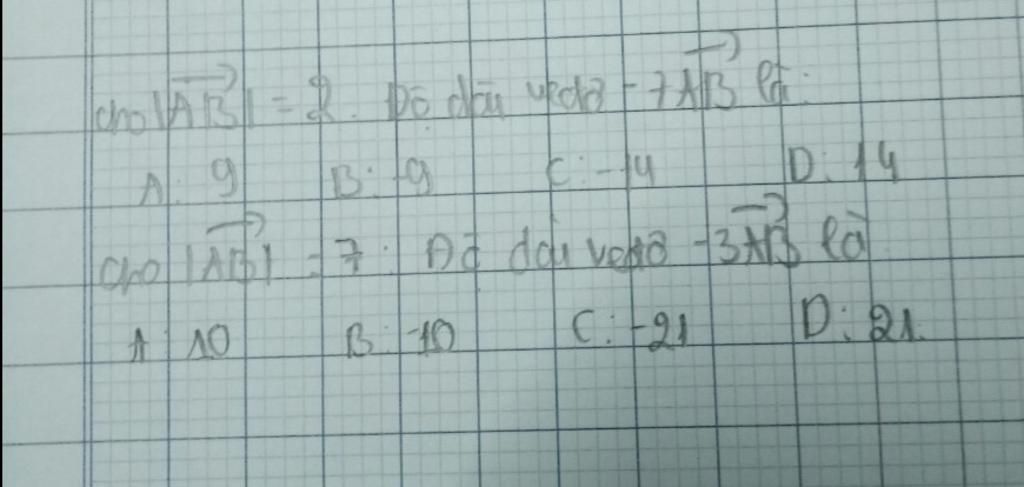 cho |AB| = 2. Độ dài vectơ -7AB là:
A: 9 B: -9 C: -14 D: 14
Cho |AB| = 7. Độ dài vectơ -3AB là
A: 10 B: -10 C: -21 D: 21.